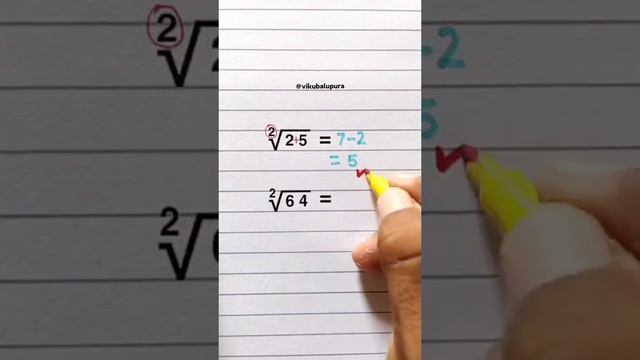 @vikubalupura
²√2+5 = 7-2
= 5
²√64 =